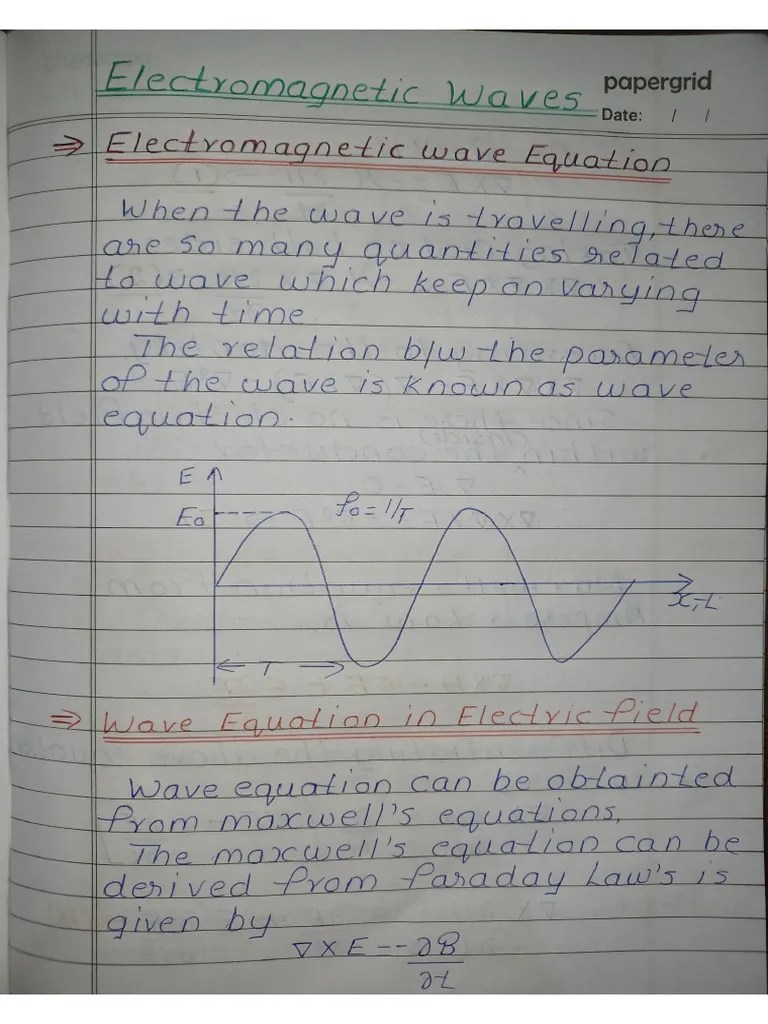 Electromagnetic Waves
papergrid
Date: / /
⇒ Electromagnetic wave Equation
When the wave is travelling, there
are so many quantities related
to wave which keep on varying
with time
The relation b/w the parameter
of the wave is known as wave
equation.
E
E0
f0 = 1/T
x, t
T
⇒ Wave Equation in Electric field
Wave equation can be obtainted
from maxwell's equations,
The maxwell's equation can be
derived from faraday Law's is
given by
∇ X E = -∂B/∂t